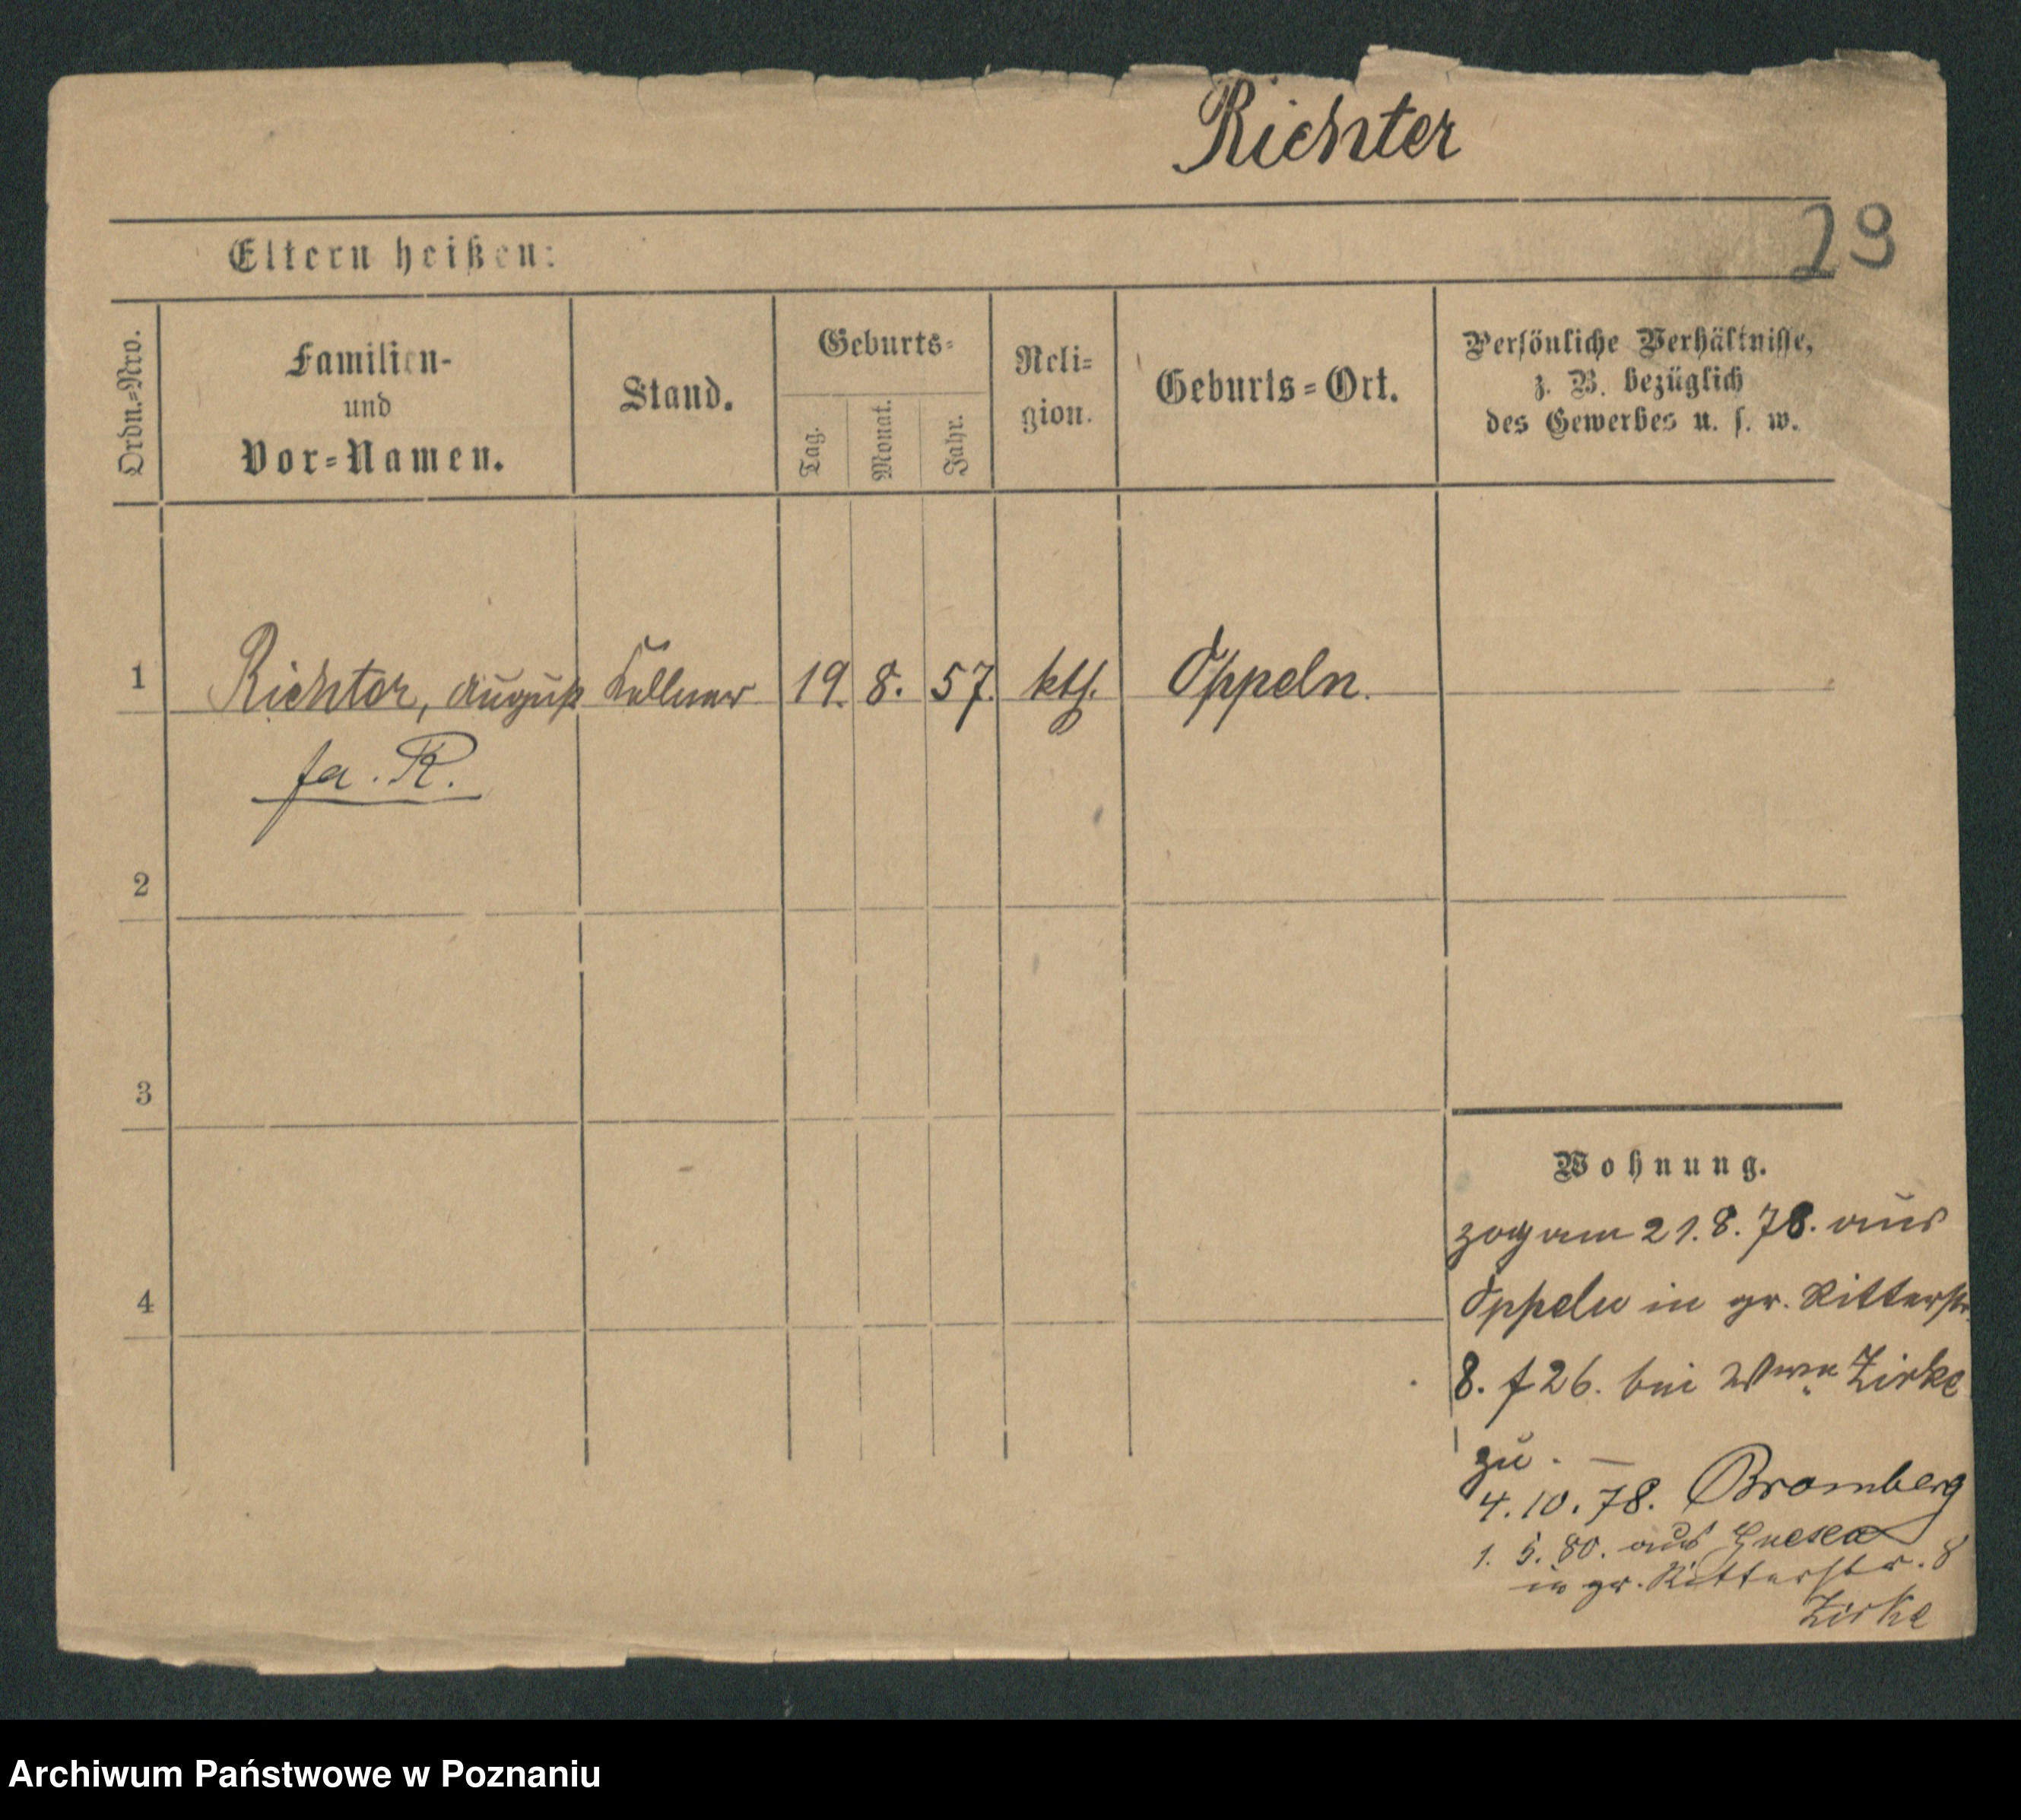 Richter
29
Eltern heißen:
Ordn.-Nro.
Familien-
und
Vor-Namen.
Stand.
Geburts-
Tag.
Monat.
Jahr.
Reli-
gion.
Geburts-Ort.
Persönliche Verhältnisse,
z. B. bezüglich
des Gewerbes u. s. w.
1 Richter, August Kellner 19. 8. 57. kth. Oppeln.
fa. R.
2
3
4
Wohnung.
zog am 21. 8. 78. aus
Oppeln in gr. Ritterstr.
8. f 26. bei Wwe Zirke
zu. —
4. 10. 78. Bromberg
1. 5. 80. aus Gnesen
in gr. Ritterstr. 8
Zirke
Archiwum Państwowe w Poznaniu